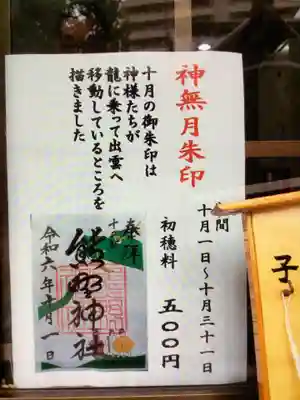 神無月朱印
間
十月一日～十月三十一日
初穂料 五〇〇円
十月の御朱印は
神様たちが
龍に乗って出雲へ
移動しているところを
描きました
奉拝
熊野神社
令和六年十月一日
子